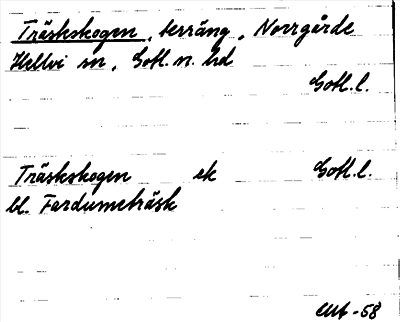 Träskskogen, terräng, Norrgårde
Hellvi sn, Gotl. n. hd
Gotl.l.
Träskskogen ek Gotl.l.
bl. Fardumeträsk
-58